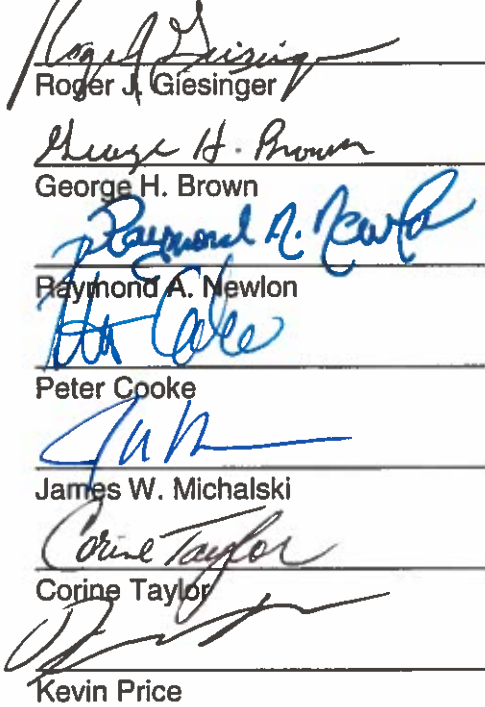 Roger J. Giesinger
Roger J. Giesinger
George H. Brown
George H. Brown
Raymond A. Newlon
Raymond A. Newlon
Peter Cooke
James W. Michalski
Corine Taylor
Corine Taylor
Kevin Price